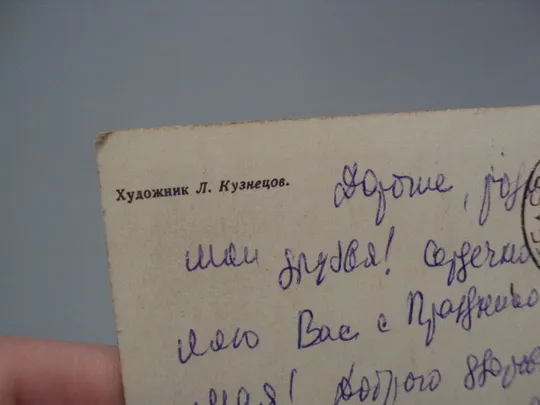 Художник Л. Кузнецов.
Дорогие, родн
мои друзья! Сердечно
ляю Вас с Праздник
мая! Доброго здоров